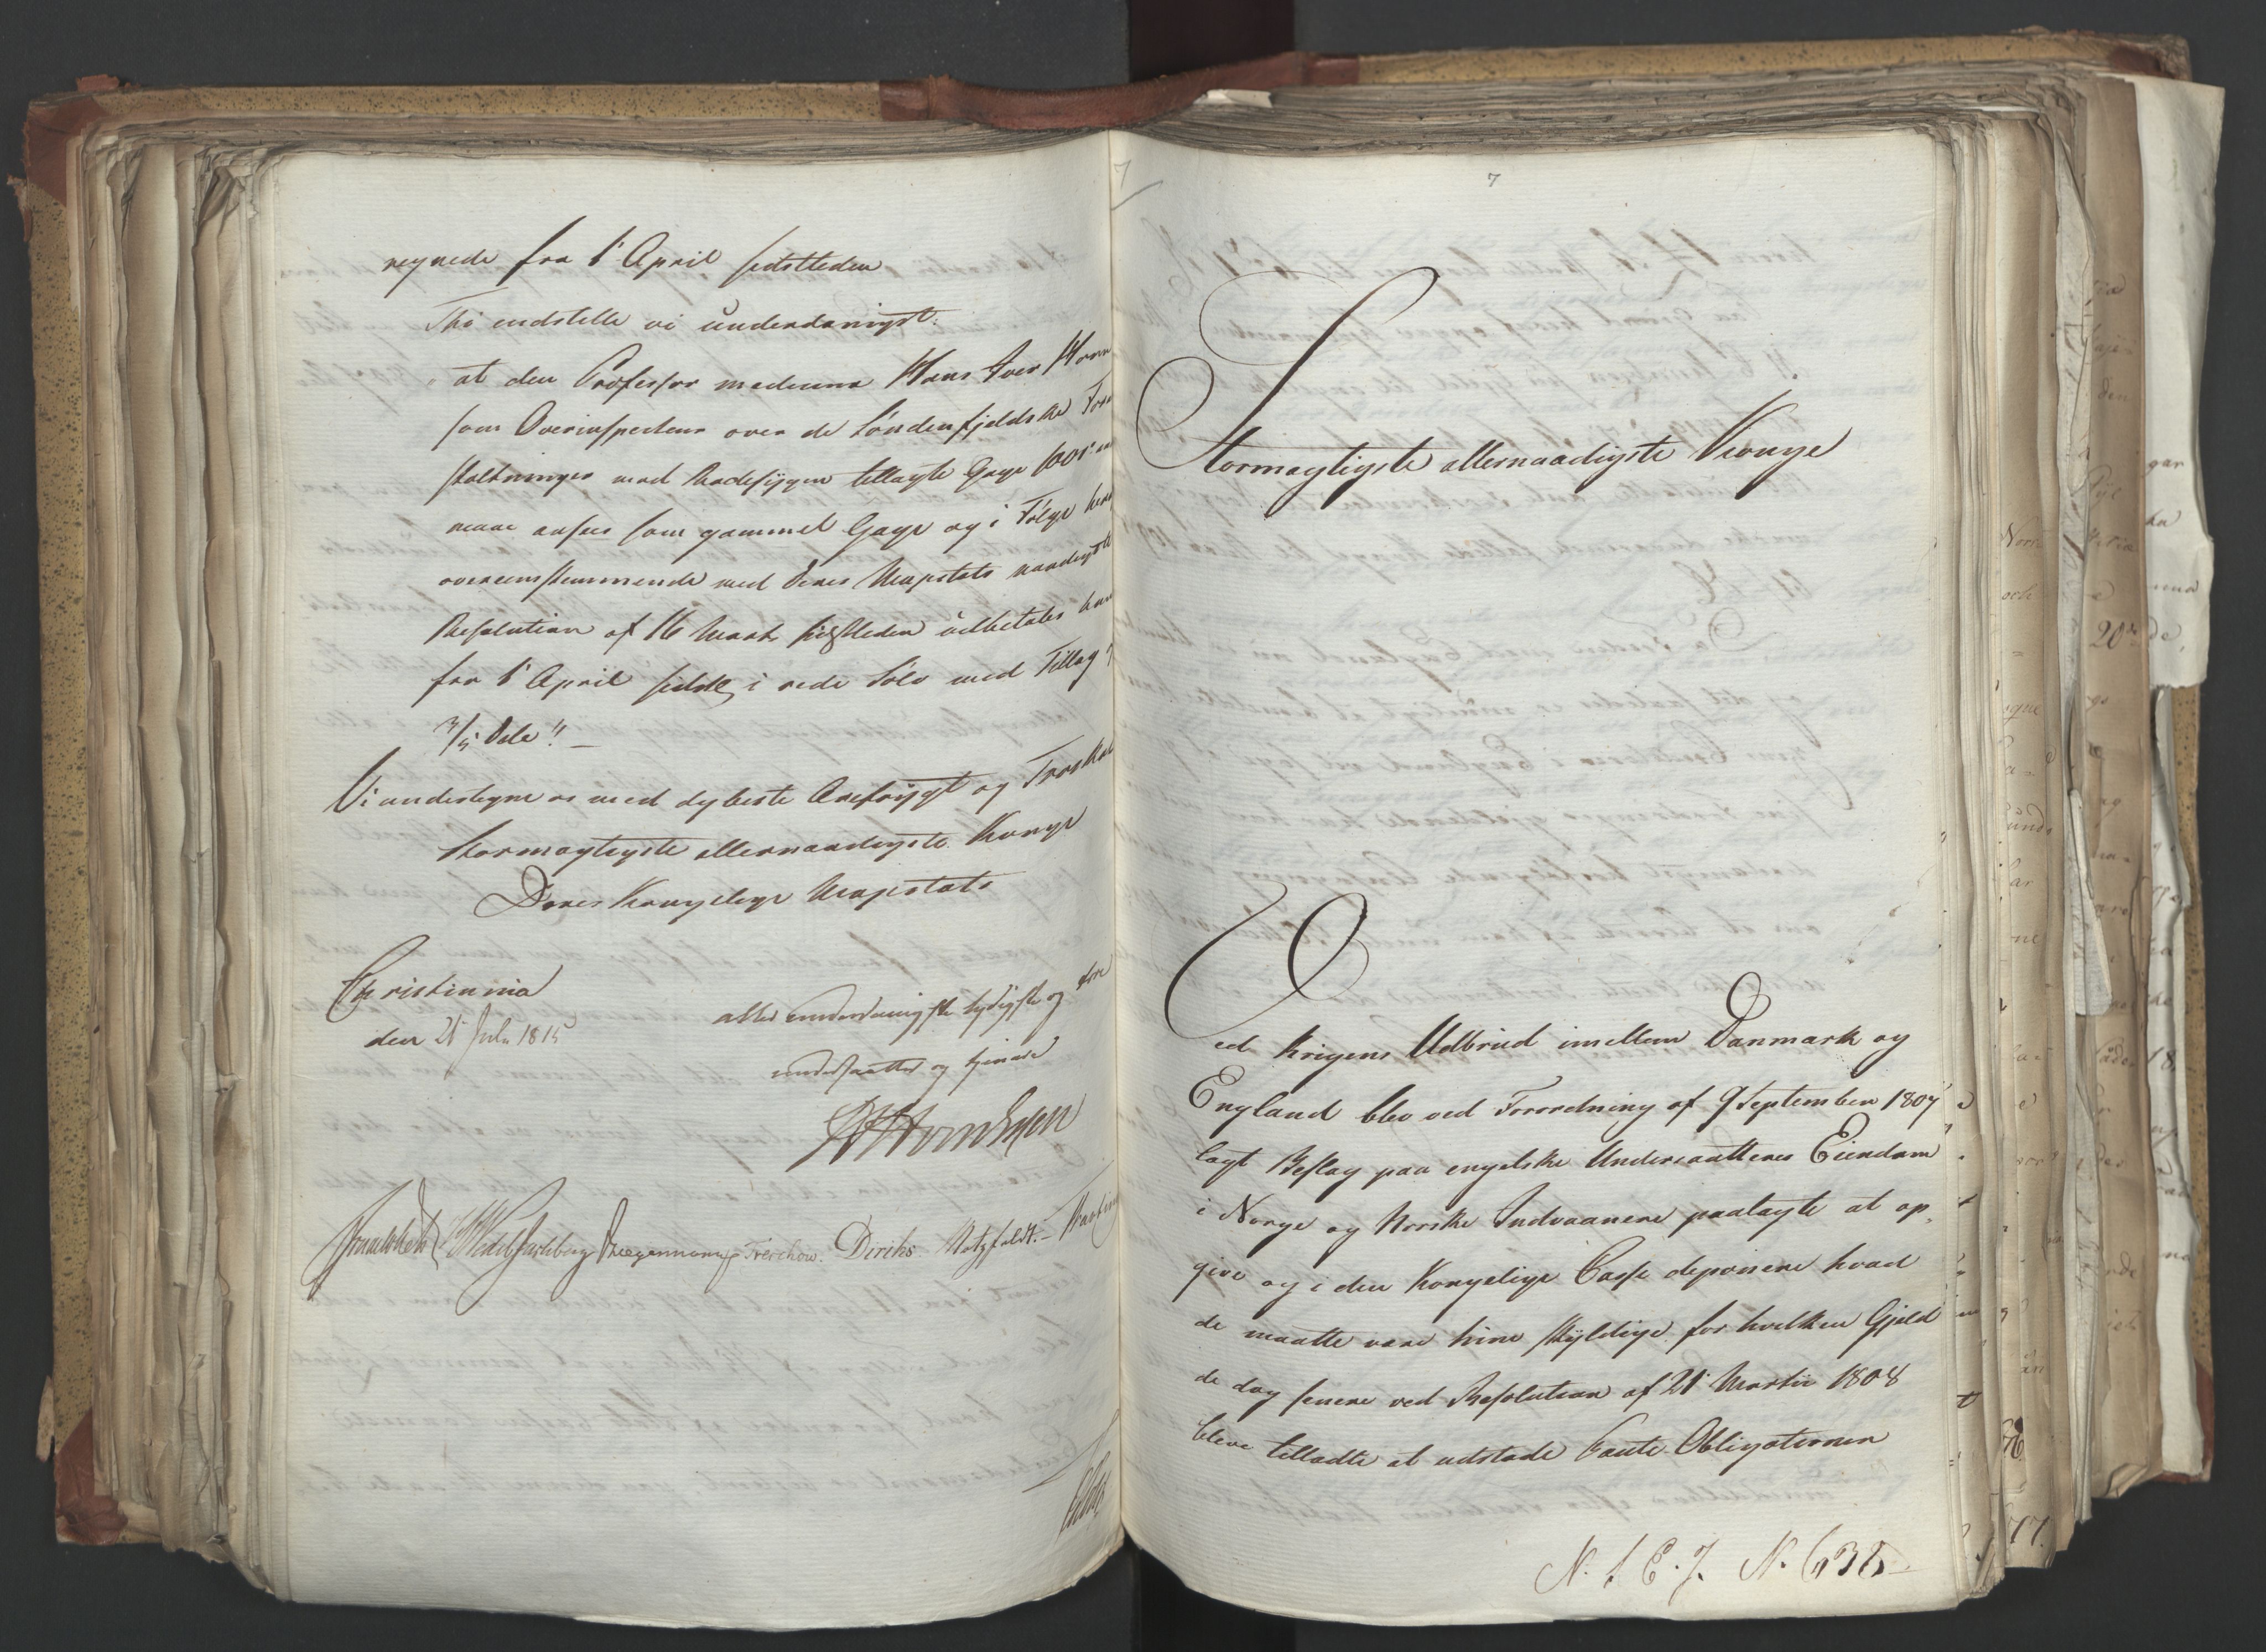 regnede fra 1' April sidstleden
Thi indstille vi underdanigst:
"at den Professor medicinæ Hans Iver Horn
som Overinspecteur over de Søndenfjeldske For
staltninger mod Radesygen tillagte Gage
maae ansees som gammel Gage og i Følge
overeenstemmende med Deres Majestæts naadigste
Resolution af 16 Marts sidstleden udbetales ham
fra 1' April sidstl, i rede Sølv med Tillæg
3/5 Dele"! —
Vi undertegne os med dybeste Ærefrygt og Troskab
Stormægtigste allernaadigste Konge
Deres Kongelige Majestæts
Christiania
den 21 Julii 1815
allerunderdanigste lydigste og troe
undersaatter og tjenere
Sommerhielm Wedel Jarlsberg Treschow. Diriks Motzfeldt.
7
7
Stormægtigste allernaadigste Konge
Ved Krigens Udbrud imellem Danmark og
England blev ved Forordning af 9 September 1807
lagt Beslag paa engelske Undersaatteres Eiendom
i Norge og Norske Indvaanere paalagte at op,
give og i den Kongelige Casse deponere hvad
de maatte være hine skyldige for hvilken Gjeld
de dog senere ved Resolution af 21' Martii 1808
bleve tilladte at udstæde Pante-Obligationer
N. 1. E. J. N. 635